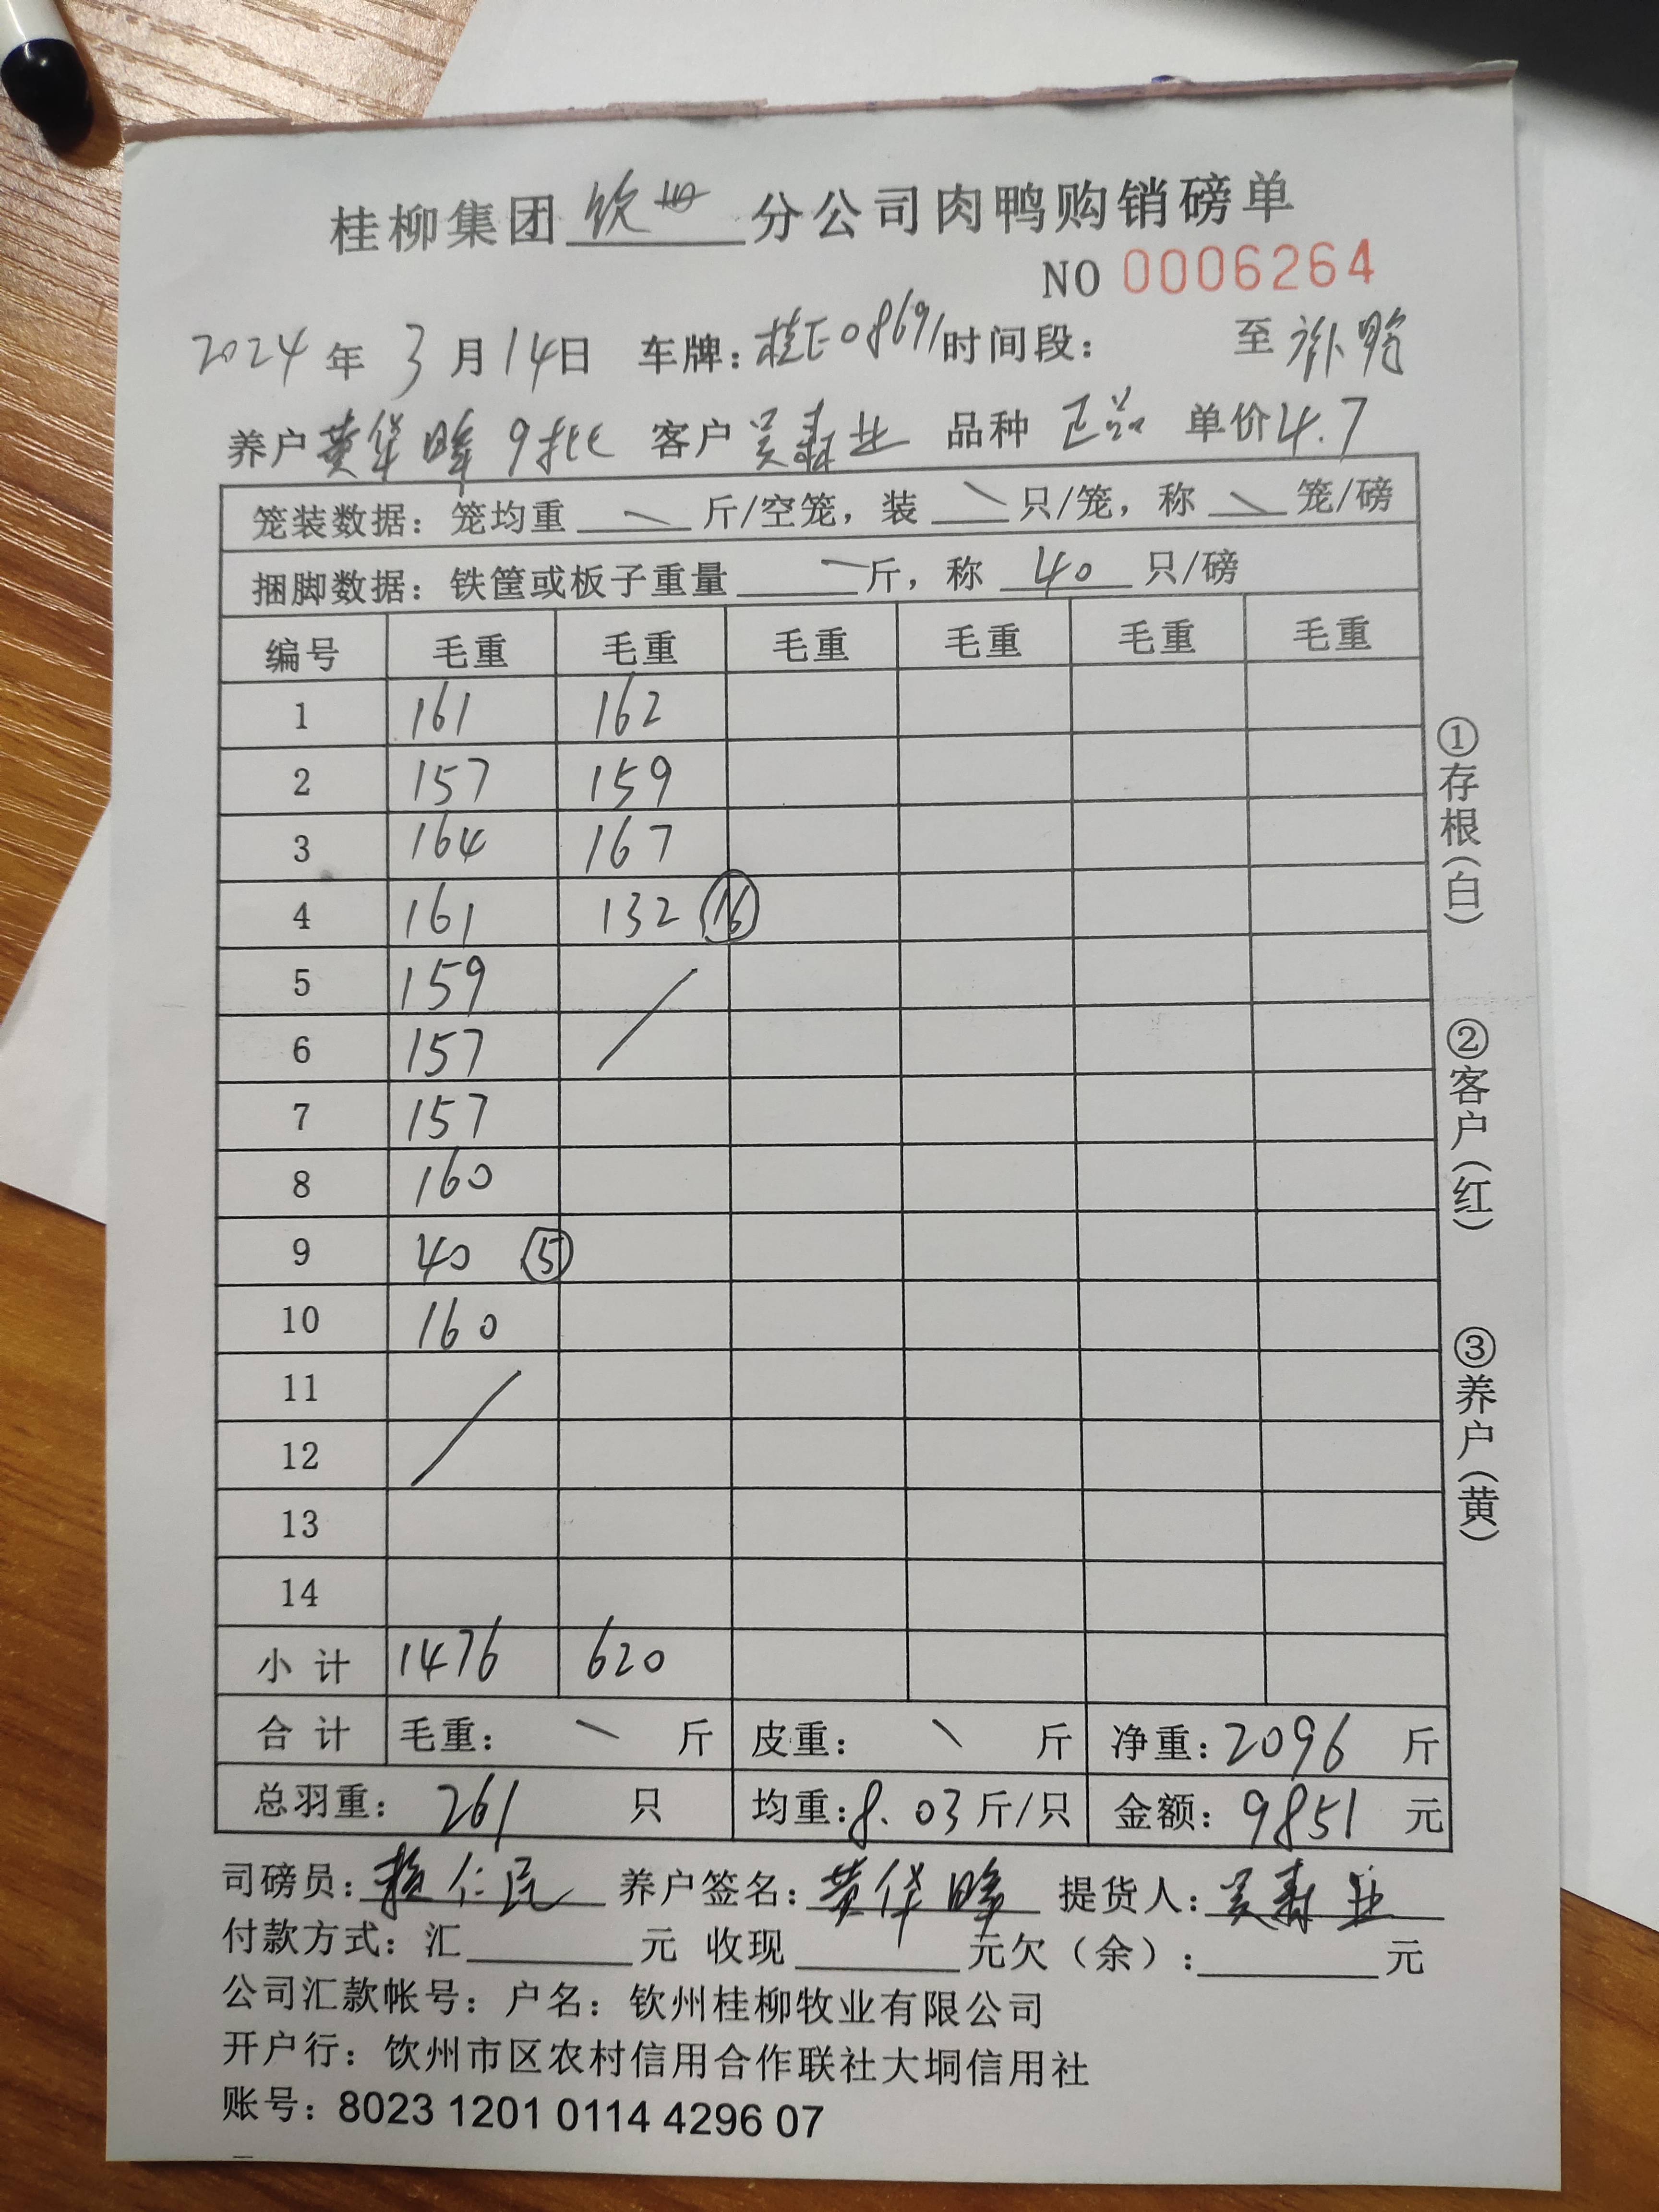 桂柳集团 钦州 分公司肉鸭购销磅单
NO 0006264
2024 年 3 月 14 日 车牌: 桂E08691 时间段: 至 补鸭
养户 黄华峰 9批 客户 吴寿业 品种 正品 单价 4.7
笼装数据: 笼均重 \ 斤/空笼, 装 \ 只/笼, 称 \ 笼/磅
捆脚数据: 铁筐或板子重量 \ 斤, 称 40 只/磅
编号 毛重 毛重 毛重 毛重 毛重 毛重
1 161 162
2 157 159
3 164 167
4 161 132 ⑯
5 159
6 157
7 157
8 160
9 40 ⑤
10 160
11
12
13
14
小计 1476 620
合计 毛重: \ 斤 皮重: \ 斤 净重: 2096 斤
总羽重: 261 只 均重: 8.03 斤/只 金额: 9851 元
司磅员: 仁民 养户签名: 黄华峰 提货人: 吴寿业
付款方式: 汇 元 收现 元欠(余): 元
公司汇款帐号: 户名: 钦州桂柳牧业有限公司
开户行: 钦州市区农村信用合作联社大垌信用社
账号: 8023 1201 0114 4296 07
①存根(白)
②客户(红)
③养户(黄)